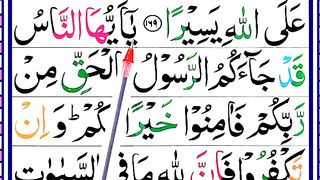 عَلَى اللهِ يَسِيْرًا ﴿١٦٩﴾ يٰۤاَيُّهَا النَّاسُ
قَدْ جَآءَكُمُ الرَّسُوْلُ بِالْحَقِّ مِنْ
رَّبِّكُمْ فَاٰمِنُوْا خَيْرًا لَّكُمْ ؕ وَاِنْ
تَكْفُرُوْا فَاِنَّ لِلّٰهِ مَا فِى السَّمٰوٰتِ